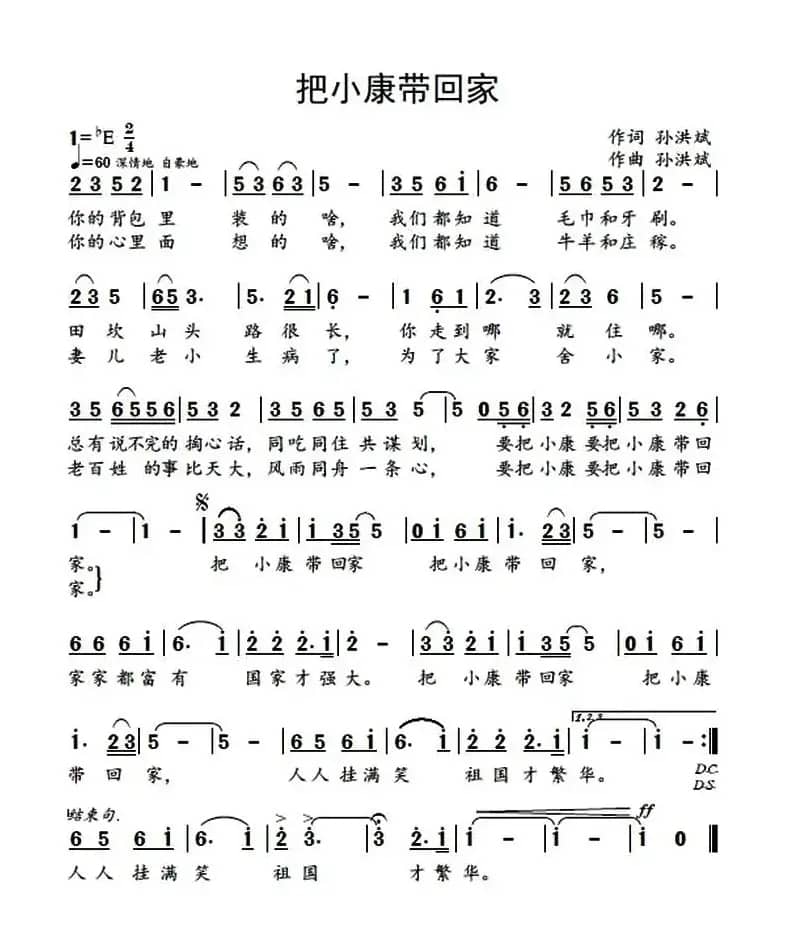 把小康带回家
1=♭E 2/4
作词 孙洪斌
♩=60 深情地 自豪地
作曲 孙洪斌
2 3 5 2 | 1 - | 5 3 6 3 | 5 - | 3 5 6 i | 6 - | 5 6 5 3 | 2 - |
你的背包里 装的啥, 我们都知道 毛巾和牙刷。
你的心里面 想的啥, 我们都知道 牛羊和庄稼。
2 3 5 | 6 5 3. | 5. 2 1 | 6 - | 1 6 1 | 2. 3 | 2 3 6 | 5 - |
田坎山头 路很长, 你走到哪 就住哪。
妻儿老小 生病了, 为了大家 舍小家。
3 5 6 5 5 6 | 5 3 2 | 3 5 6 5 | 5 3 5 | 5 0 5 6 | 3 2 5 6 | 5 3 2 6 |
总有说不完的掏心话, 同吃同住共谋划, 要把小康要把小康带回
老百姓的事比天大, 风雨同舟一条心, 要把小康要把小康带回
1 - | 1 - | 3 3 2 i | i 3 5 5 | 0 i 6 i | i. 2 3 | 5 - | 5 - |
家。 把小康带回家 把小康带回家,
家。
6 6 6 i | 6. i | 2 2 2. i | 2 - | 3 3 2 i | i 3 5 5 | 0 i 6 i |
家家都富有 国家才强大。 把小康带回家 把小康
i. 2 3 | 5 - | 5 - | 6 5 6 i | 6. i | 2 2 2. i | i - | i - :|
1.2.3
带回家, 人人挂满笑 祖国才繁华。 D.C.
D.S.
结束句.
ff
6 5 6 i | 6. i | 2 3. | 3 | 2. i | i - | i - | i 0 ‖
人人挂满笑 祖国 才繁华。